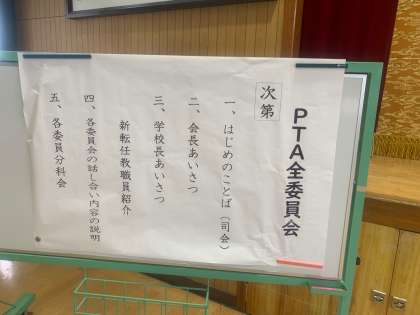 PTA全委員会
次第
一、はじめのことば(司会)
二、会長あいさつ
三、学校長あいさつ
新転任教職員紹介
四、各委員会の話し合い内容の説明
五、各委員分科会